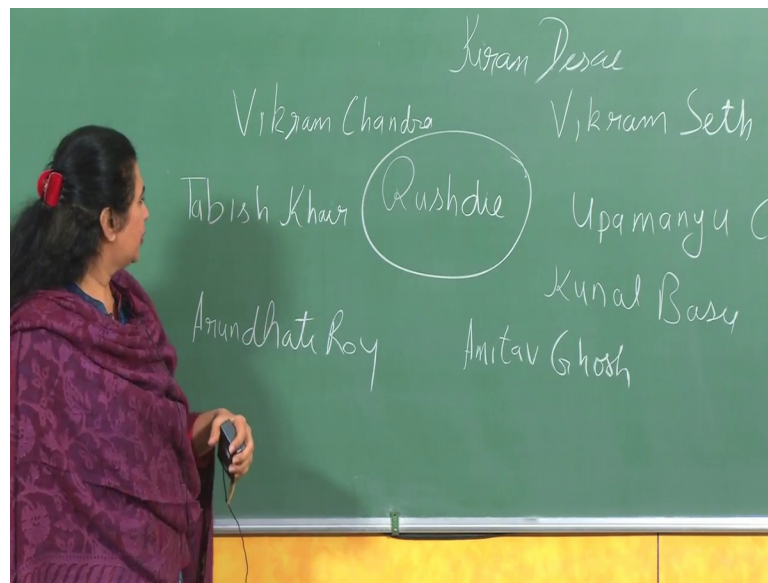 Kiran Desai
Vikram Chandra
Vikram Seth
Tabish Khair
Rushdie
Upamanyu C
Kunal Basu
Arundhati Roy
Amitav Ghosh